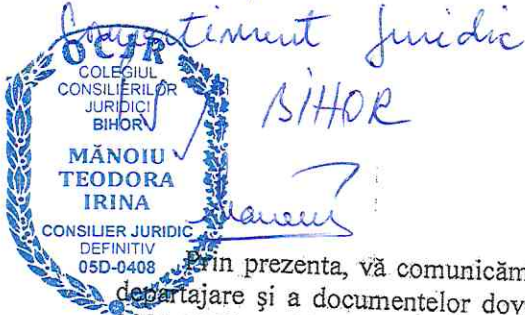 Compartiment Juridic
BIHOR
OCJR
COLEGIUL
CONSILIERILOR
JURIDICI
BIHOR
MĂNOIU
TEODORA
IRINA
CONSILIER JURIDIC
DEFINITIV
05D-0408
Prin prezenta, vă comunicăm
departajare şi a documentelor dov